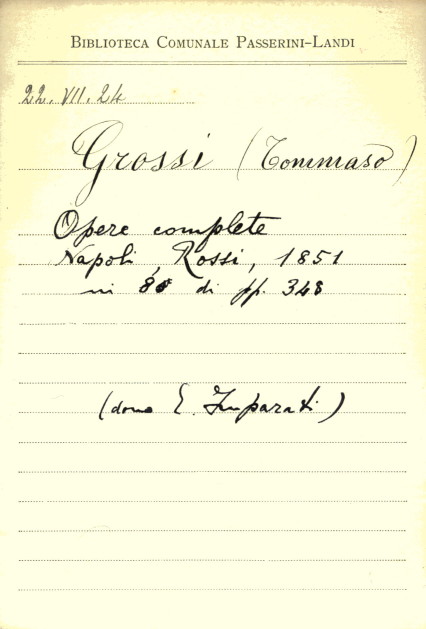 BIBLIOTECA COMUNALE PASSERINI-LANDI
22. VII. 24
Grossi (Tommaso)
Opere complete
Napoli, Rossi, 1851
in 8º di pp. 348
(dono E. Imparati)